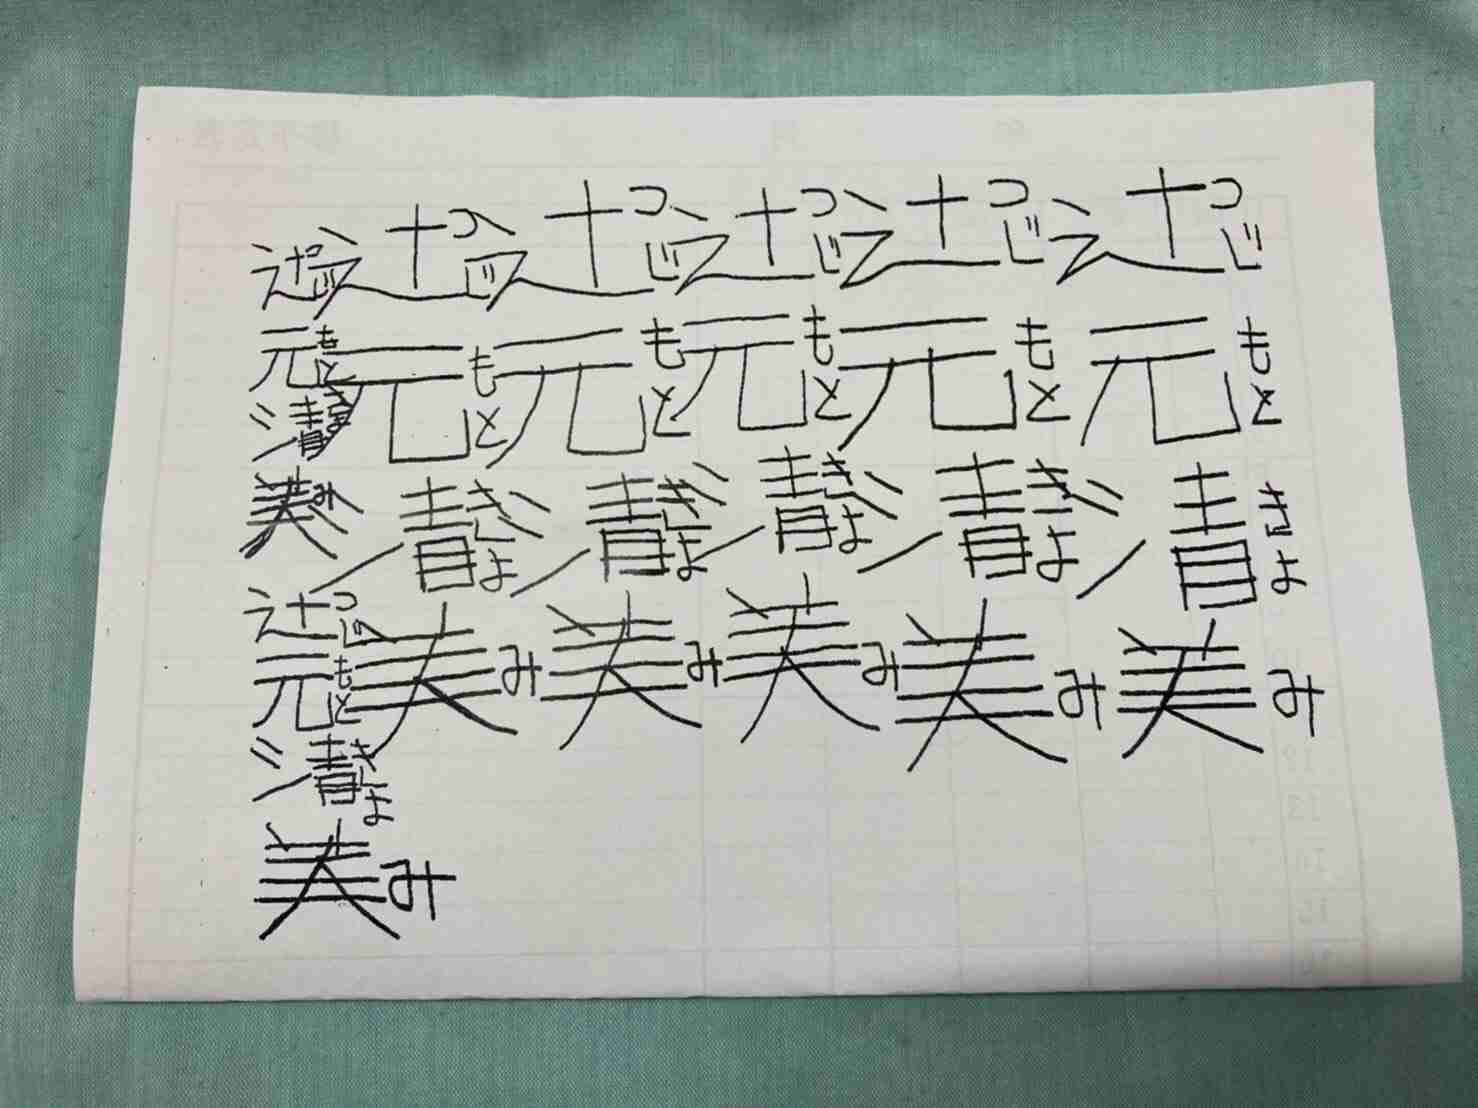 つじもときよみ
辻元清美
つじもときよみ
辻元清美
つじもときよみ
辻元清美
つじもときよみ
辻元清美
つじもときよみ
辻元清美
つじもときよみつじもときよみ
辻元清美辻元清美